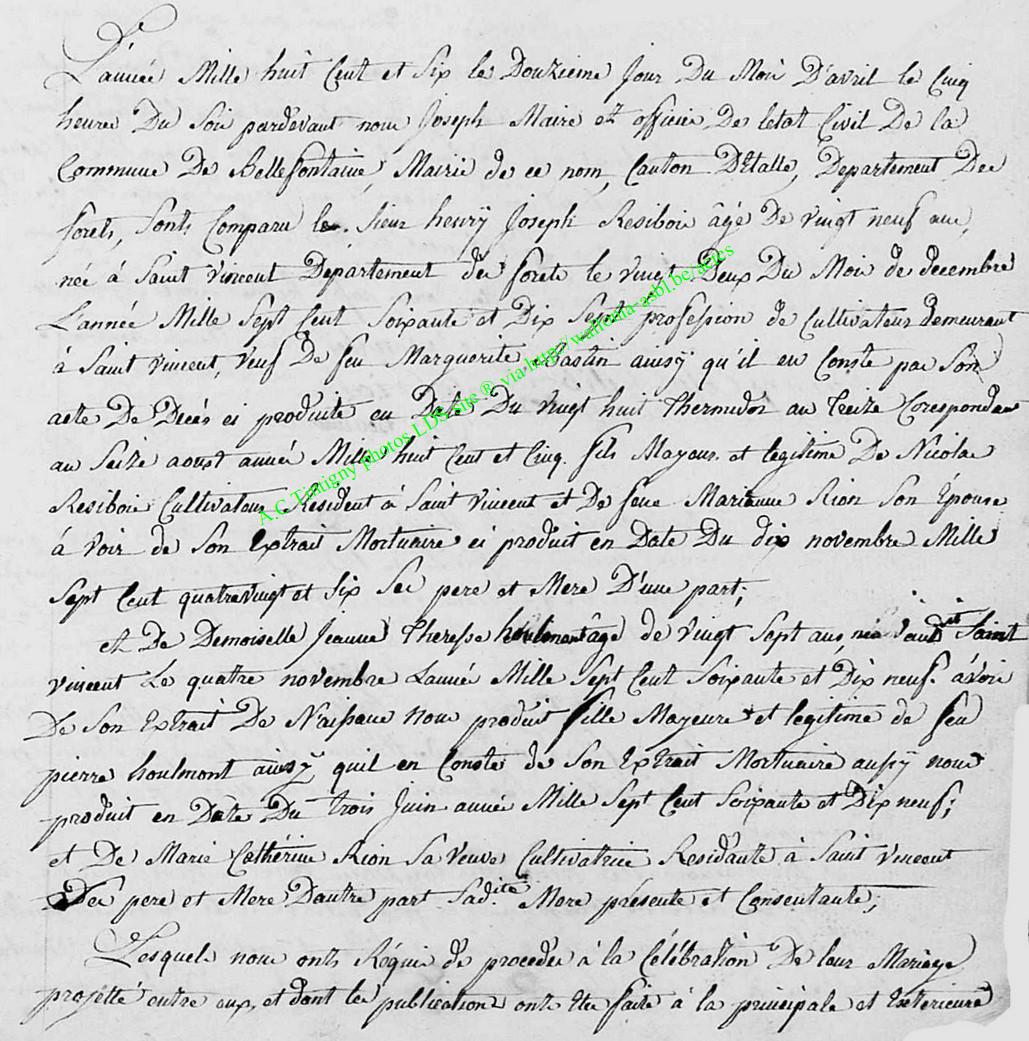 L'année Mille huit Cent et Six le Douzieme Jour Du Mois D'avril le Cinq
heures Du Soir pardevant nous Joseph Maire et officier De letat Civil De la
Commune De Bellefontaine, Mairie de ce nom, Canton D'Etalle, Departement Des
forets, Sonts Comparu le Sieur henrÿ Joseph Resibois âgé De vingt neuf ans,
née à Saint vincent Departement des forets le vingt Deux Du Mois de decembre
L'année Mille Sept Cent Soixante et Dix Sept profession de Cultivateur demeurant
à Saint vincent, veuf De feu Marguerite ainsy qu'il en Conste par Son
acte De Décés ci produite en Date Du vingt huit Thermidor an Treize Corespondan
au Seize aoust année Mille huit Cent et Cinq. fils Mayeur et legitime De Nicolas
Resibois Cultivateur Résident à Saint vincent et De feue Marianne Rion Son Epouse
à voir de Son Extrait Mortuaire ci produit en Date Du dix novembre Mille
Sept Cent quatrevingt et Six Ses pere et Mere D'une part;
et De Demoiselle Jeanne Therese houlmont âgé de vingt Sept ans, née audit Saint
vincent Le quatre novembre Lanneé Mille Sept Cent Soixante et Dix neuf. àvoir
De Son Extrait De Naissance nous produit fille Mayeure et legitime de feu
pierre houlmont ainsy quil en Conste de Son Extrait Mortuaire aussy nous
produit en Date Du trois Juin année Mille Sept Cent Soixante et Dix neuf;
et De Marie Cathérine Rion Sa veuve Cultivatrice Residante à Saint vincent
Ses pere et Mere Dautre part Sad.ite Mere présente et Consentante;
Lesquels nous onts Réquis de proceder à la Célébration De leur Mariage
projetté entre eux, et dont les publications onts Eté faite à la principale et Exterieure
A.C. Timigny photos LDS site ® via http://wallonia-asbl.be/actes